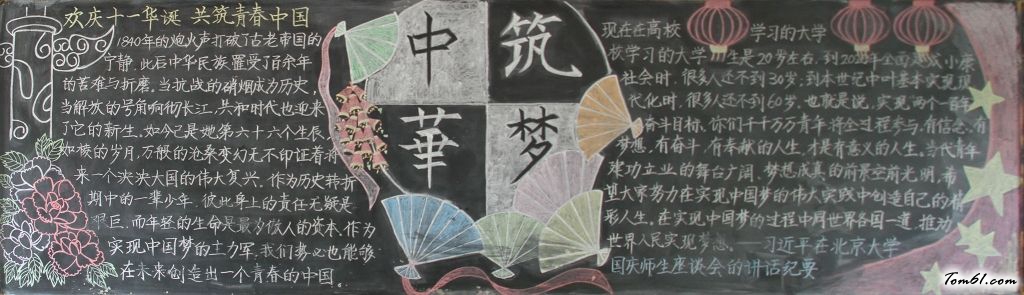 欢庆十一华诞 共筑青春中国
1840年的炮火声打破了古老帝国的
宁静,此后中华民族置受了百余年
的苦难与折磨。当抗战的硝烟成为历史,
当解放的号角响彻长江,共和时代也迎来
了它的新生。如今已是她第六十六个生辰。
如梭的岁月,万般的沧桑变幻无不印证着将
来一个泱泱大国的伟大复兴。作为历史转折
期中的一辈少年,彼此身上的责任无疑是
艰巨,而年轻的生命是最为傲人的资本。作为
实现中国梦的主力军,我们务必也能够
在未来创造出一个青春的中国。
中 筑
華 梦
现在在高校 学习的大学
校学习的大学 生是20岁左右,到2020年全面建成小康
社会时,很多人还不到30岁;到本世纪中叶基本实现现
代化时,很多人还不到60岁。也就是说,实现两个一百年
奋斗目标,你们千千万万青年将全过程参与。有信念、有
梦想、有奋斗、有奉献的人生,才是有意义的人生。当代青年
建功立业的舞台广阔、梦想成真的前景空前光明,希
望大家努力在实现中国梦的伟大实践中创造自己的精
彩人生。在实现中国梦的过程中同世界各国一道,推动
世界人民实现梦想。——习近平在北京大学
国庆师生座谈会的讲话纪要
Tom61.com